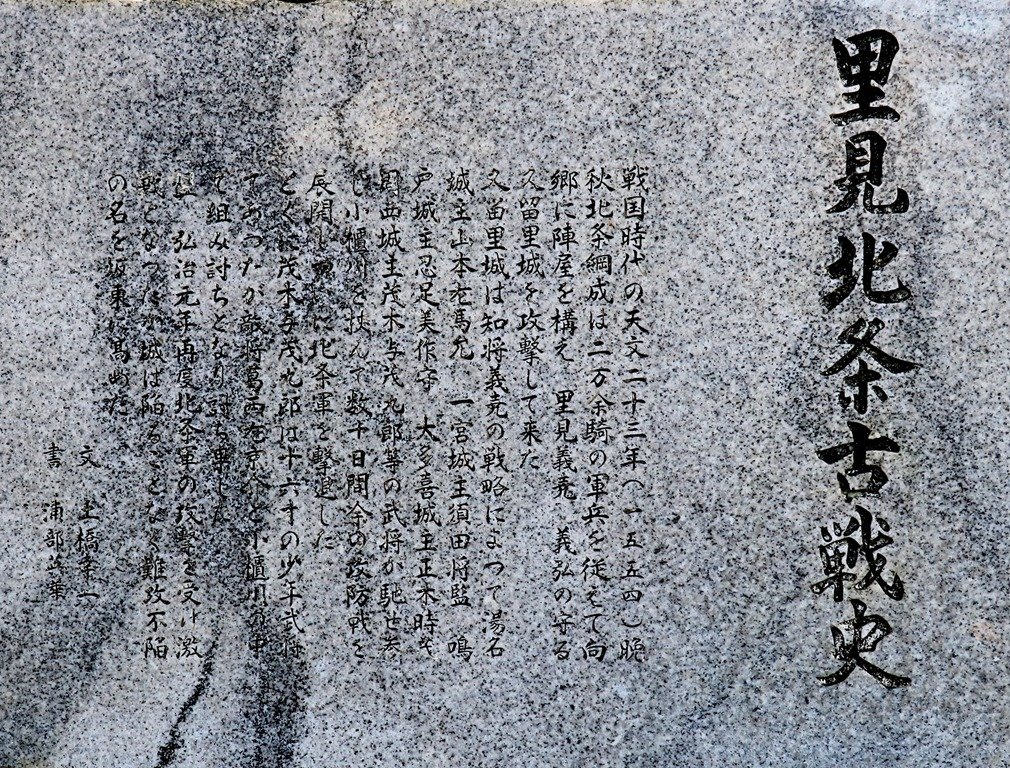 里見北条古戦史
戦国時代の天文二十三年(一五五四)晩
秋北条綱成は二万余騎の軍兵を従えて向
郷に陣屋を構え 里見義堯 義弘の守る
久留里城を攻撃して来た
久留里城は知将義堯の戦略によつて湯名
城主山本左馬允 一宮城主須田将監 鳴
戸城主忍足美作守 大多喜城主正木時
岡西城主茂木与茂九郎等の武将が馳せ参
じ小櫃川を挟んで数十日間余の攻防戦を
展開し に北条軍を撃退した
とくに茂木与茂九郎は十六才の少年武将
であつたが敵将葛西左京 と小櫃川の中
で組み討ちとなり討ち果した
弘治元年再度北条軍の攻撃を受け激
戦となつた 城は陥ることなく難攻不陥
の名を坂東に高めた
文 土橋幸一
書 浦部